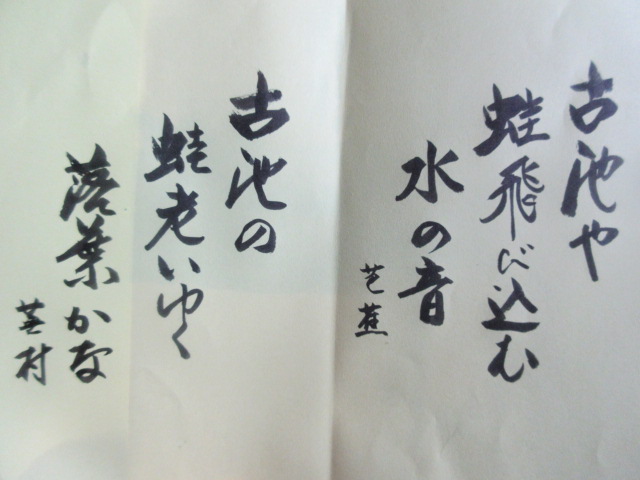 古池や
蛙飛び込む
水の音
芭蕉
古池の
蛙老いゆく
落葉かな
蕪村